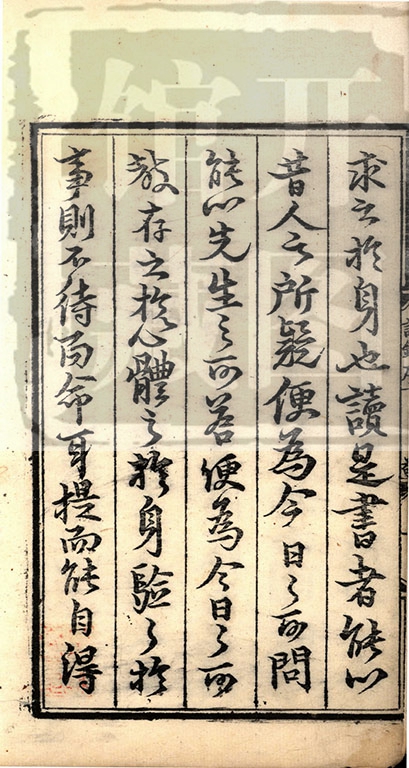 求之於身也讀是書者能以
昔人之所疑便為今日之所問
能以先生之所答便為今日之所
教存之於心體之於身驗之於
事則不待面命耳提而能自得